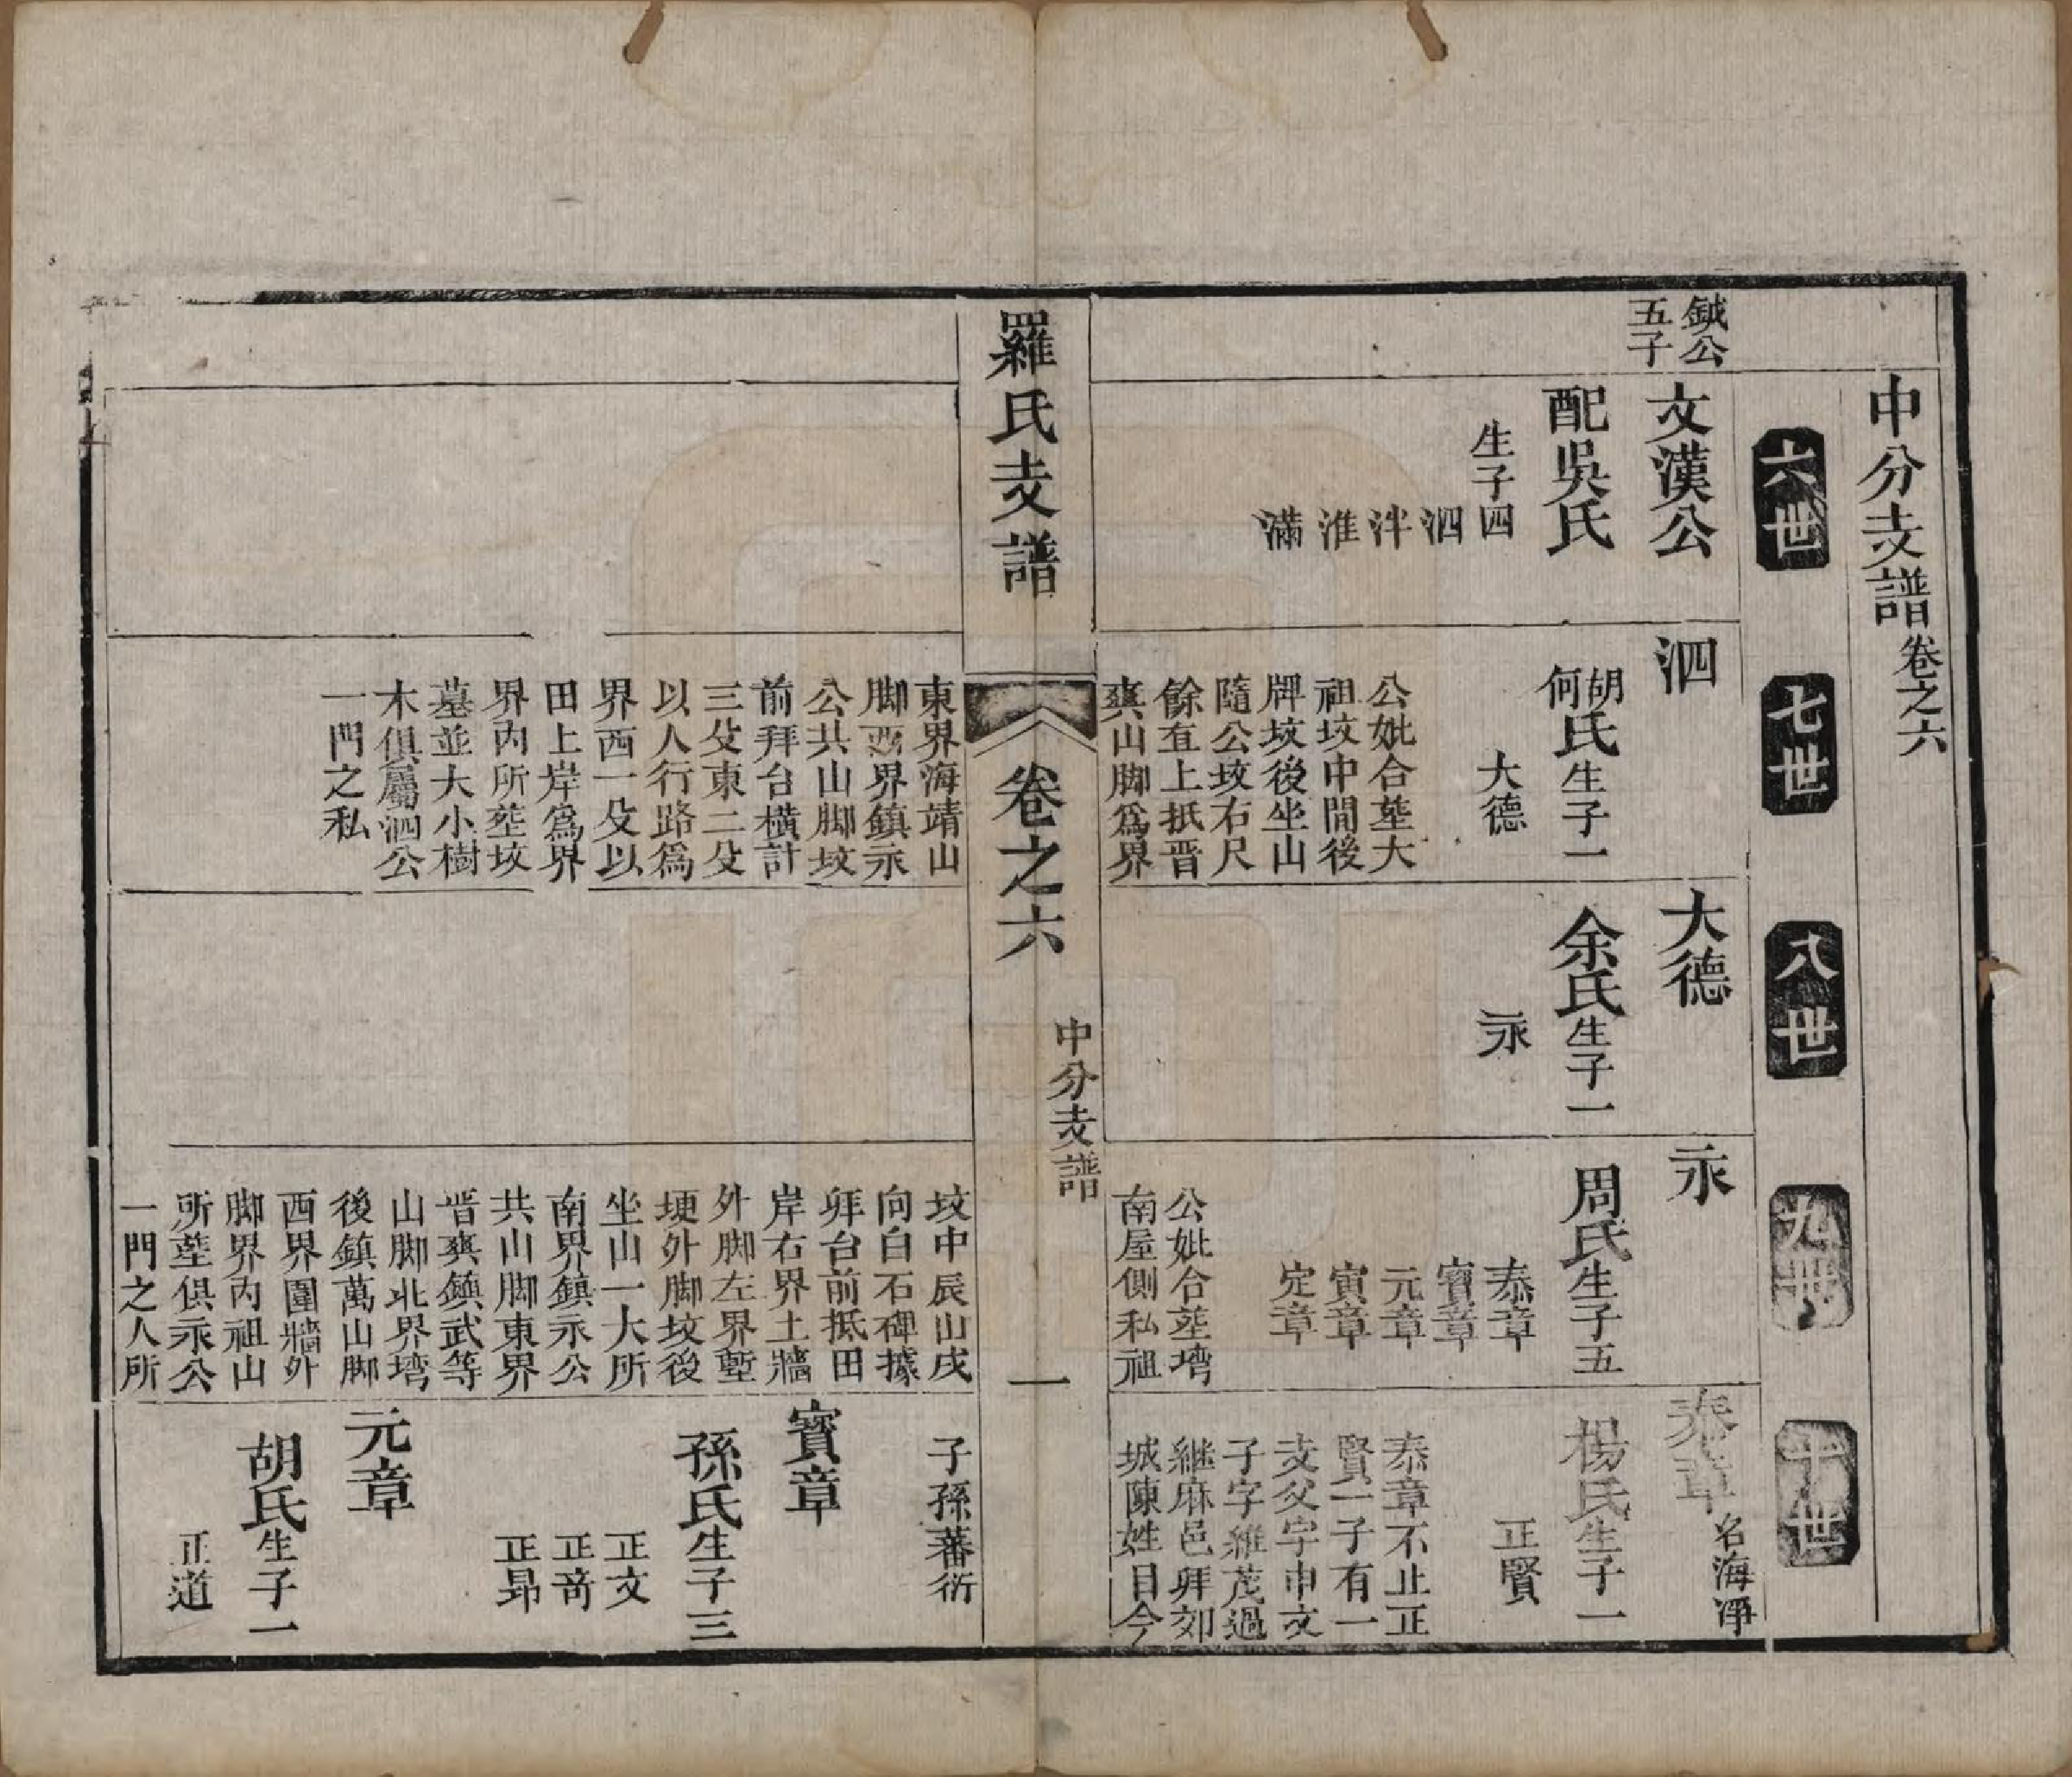 中分支譜卷之六
六世
七世
八世
九世
十世
鉞公
五子
文漢公
配吳氏
生子四
泗
泮
淮
滿
泗
胡何氏生子一
大德
公妣合塟大
祖坟中間後
牌坟後坐山
隨公坟右尺
餘直上抵晋
爽山脚爲界
東界海靖山
脚西界鎮永
公共山脚坟
前拜台橫計
三殳東二殳
以人行路爲
界西一殳以
田上岸爲界
界內所塟坟
墓並大小樹
木俱屬泗公
一門之私
大德
余氏生子一
永
永
周氏生子五
泰章
賓章
元章
寅章
定章
公妣合塟塆
南屋側私祖
坟中辰山戌
向白石碑據
拜台前抵田
岸右界土牆
外脚左界塹
埂外脚坟後
坐山一大所
南界鎮永公
共山脚東界
晋爽鎮武等
山脚北界塆
後鎮萬山脚
西界圍牆外
脚界內祖山
所塟俱永公
一門之人所
泰章名海淨
楊氏生子一
正賢
泰章不止正
賢一子有一
支父字中文
子字維茂過
継麻邑拜郊
城陳姓目今
子孫蕃衍
賓章
孫氏生子三
正文
正奇
正昂
元章
胡氏生子一
正道
羅氏支譜
卷之六
中分支譜
一